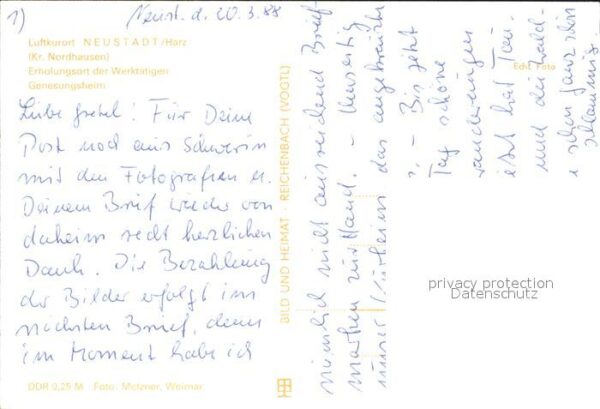 1)
Neust. d. 20.3.88
Luftkurort NEUSTADT/Harz
(Kr. Nordhausen)
Erholungsort der Werktätigen
Genesungsheim
Liebe Gretel! Für Deine
Post noch aus Schwerin
mit den Fotografien u.
Deinem Brief wieder von
daheim recht herzlichen
Dank. Die Bezahlung
der Bilder erfolgt im
nächsten Brief, denn
im Moment habe ich
DDR 0,25 M Foto: Melzner, Weimar
BILD UND HEIMAT · REICHENBACH (VOGTL)
nämlich nicht ausreichend Brief-
marken zur Hand. –
unser das angebrachte
? – Bis jetzt
Tag schöne
wanderungen
ist hat Tau-
und die Wald-
schon ganz schön
schlammig
Echt Foto
privacy protection
Datenschutz